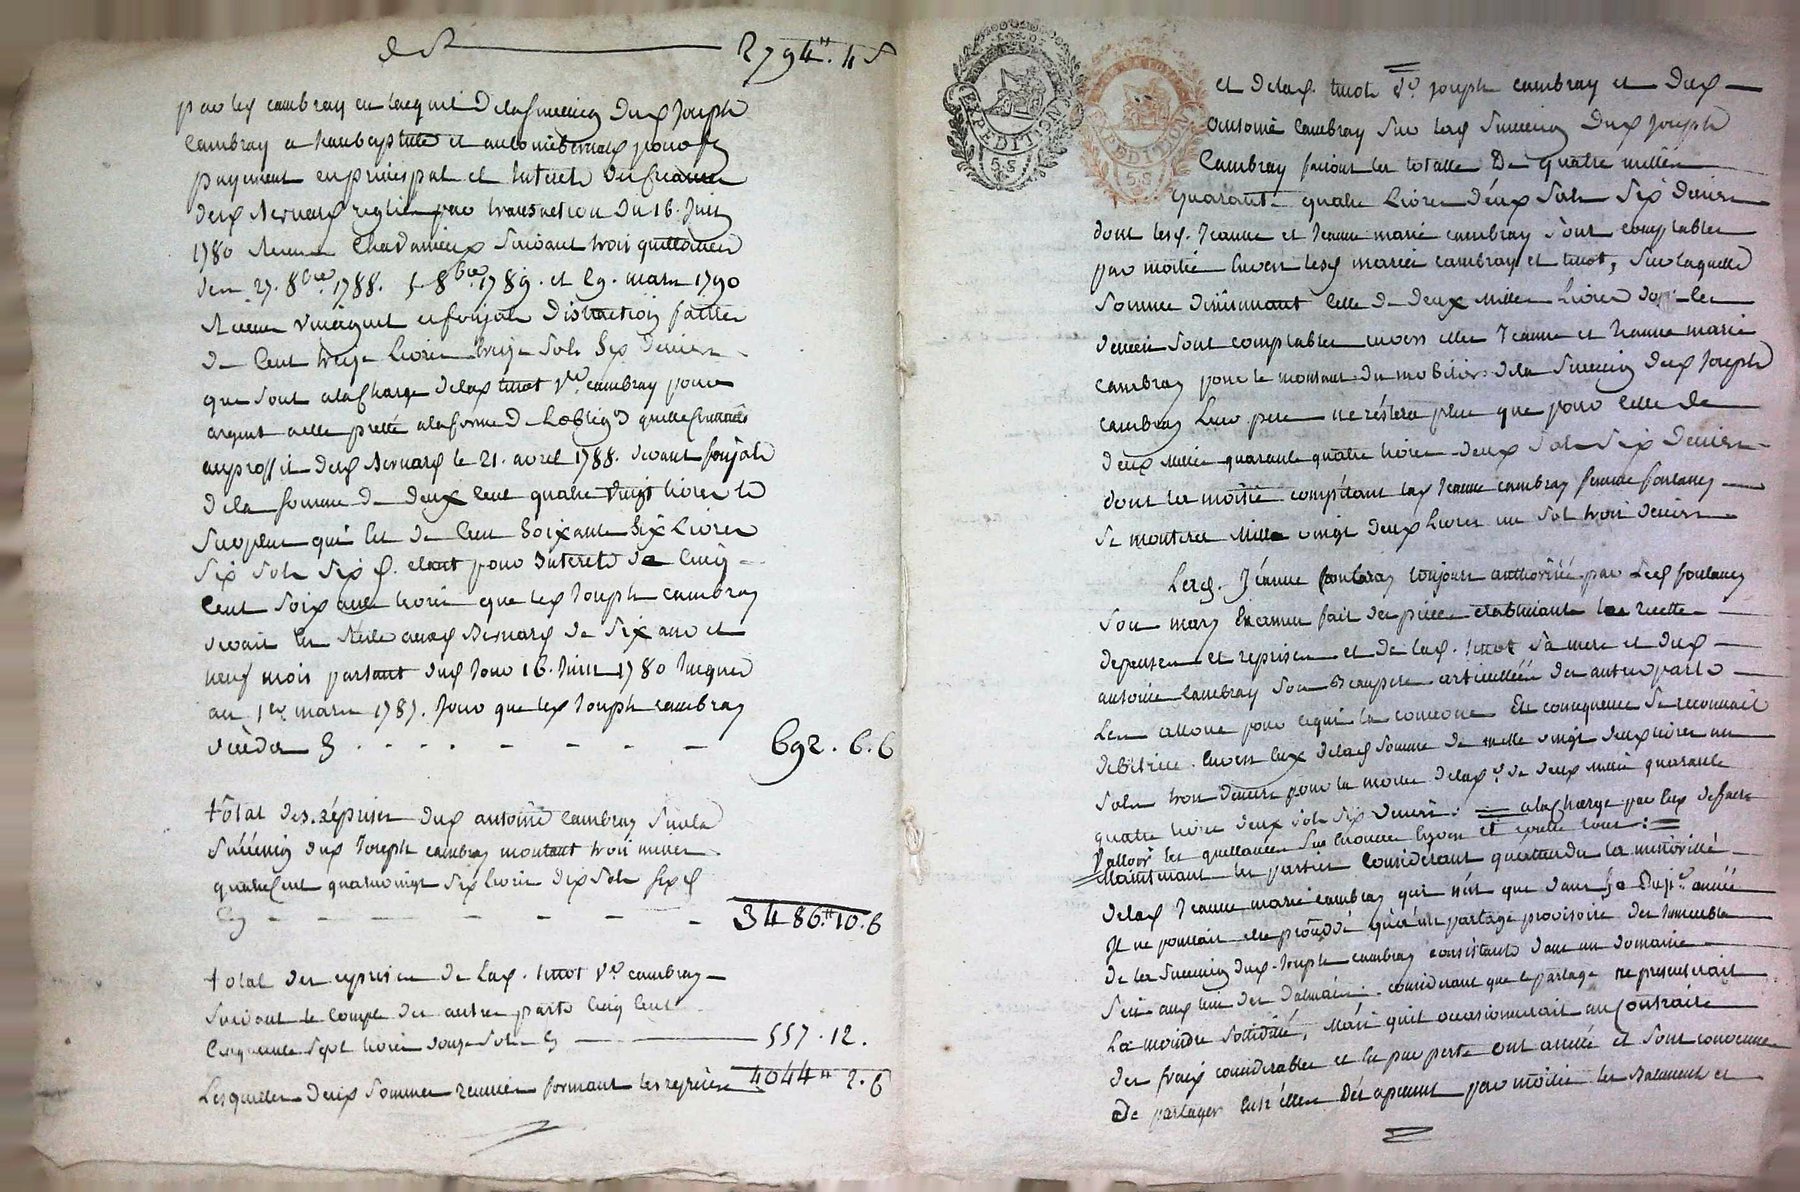 de 2794ᵗᵗ. 4 s
par led cambray en lacquit de la succession dud Joseph
Cambray a et antoine bernard pour
payement en principal et Interets des creances
desd Bernard reglées par transaction du 16. Juin
1780 Recue Chavanieux suivant trois quittances
des 27. 8bre 1788. 5. 8bre 1789. et 29. mars 1790
Recues Vincignet et foujols distraction faitte
de Cent treize Livres treize sols Six deniers
que sont a la Charge de lad tinot Vve cambray pour
argent a elle pretté a la forme de L'oblig.on quelle
au proffit desd Bernard le 21. avril 1788. devant foujols
de la somme de deux Cent quatre vingt livres le
surplus qui est de Cent Soixante Six Livres
six sols six d. etant pour Interets de Cinq
Cent Soixante livres que led Joseph cambray
devait en Reste auxd Bernard de Six ans et
neuf mois partant dud Jour 16. Juin 1780 Jusques
au 1er mars 1787. Jour que led Joseph cambray
décéda Cy . . . . 692. 6. 6
total des reprises dud antoine Cambray sur la
succession dud Joseph cambray montant trois milles
quatre Cent quatre vingt six livres dix sols six d
Cy 3486ᵗᵗ. 10. 6
total des reprises de Lad. tinot Vve cambray
suivant le Compte des autres parts Cinq Cent
Cinquante Sept livres douze Sols Cy 557. 12.
Lesquelles deux Sommes reunies formant les reprises 4044ᵗᵗ 2. 6
et de lad. tinot Vve Joseph cambray et dud
Antoine Cambray sur lad Succession dud Joseph
Cambray faisant en totalle De quatre milles
quarante quatre Livres deux Sols Six deniers
dont lesd. Jeanne et Jeanne marie cambray sont comptables
par moitié envers lesd mariés cambray et tinot, sur laquelle
somme diminuant celle de deux Milles Livres dont les
derniers sont comptables envers elles Jeanne et Jeanne marie
cambray pour le montant du mobilier de la Succession dud Joseph
cambray leur pere ne restera plus que pour celle de
deux Mille quarante quatre livres deux sols six deniers
dont la moitié compétant lad Jeanne cambray femme foulancy
se montera Mille vingt deux livres un sol trois deniers
Lad. Jeanne Cambray toujours authorisée par Led foulancy
son mary Examen fait des pieces etablissants les recette
depenses et reprises et de lad. tinot sa mere et dud
antoine Cambray son Beaupere articullées des autres parts
Les alloue pour ce qui la concerne En consequence se reconnait
debitrice envers Eux de lad somme de mille vingt deux livres un
sols trois deniers pour la moitié de lad.e de deux Mille quarante
quatre livres deux sols six deniers: = a la charge par Eux de faire
allouer les quittances sur
Maintenant les parties Considerant quattendu la minorité
de lad Jeanne marie Cambray qui n'est que dans sa année
Il ne pourrait etre procédé qu'à un partage provisoire des Immeubles
de la Succession dud. Joseph cambray consistants dans un domaine
scis aux lieu des dalmais: considerant que le partage ne presenterait
La moindre solidité, Mais quil occasionnerait au Contraire
des fraix considerables et en pure perte ont arreté et sont convenues
de partager entr'elles Des apresent par moitié les Batiments et
EXPEDITION
5. S
EXPEDITION
5. S